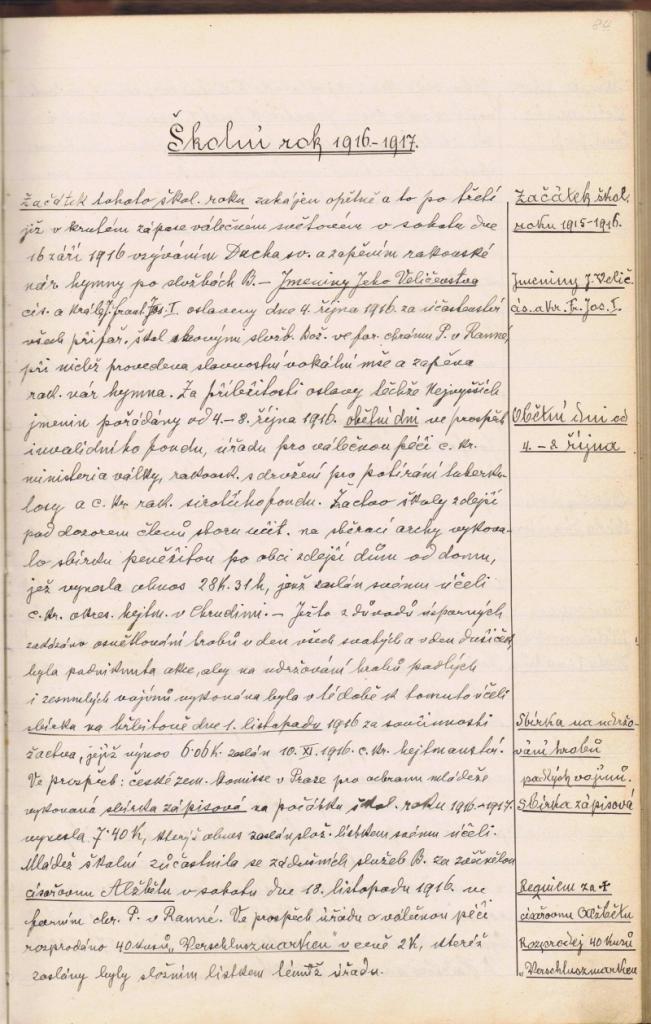 84
Školní rok 1916-1917.
Začátek tohoto škol. roku zahájen opětně a to po třetí
již v krutém zápase válečném světovém v sobotu dne
16 září 1916 vzýváním Ducha sv. a zapěním rakouské
nár. hymny po službách B. – Jmeniny Jeho Veličenstva
cís. a krále Frant. Jos. I. oslaveny dne 4. října 1916 za účastenství
všech přifař. škol skovným služb. Bož. ve far. chrámu P. v Ranné,
při nichž provedena slavnostní vokální mše a zapěna
rak. nár. hymna. Za příležitosti oslavy těchže Nejvyšších
jmenin pořádány od 4.-8. října 1916 obětní dni ve prospěch
invalidního fondu, úřadu pro válečnou péči c. kr.
ministeria války, rakousk. sdružení pro potírání tuberku-
losy a c. kr. rak. sirotčího fondu. Žactvo školy zdejší
pod dozorem členů sboru učit. na sběrací archy vykona-
lo sbírku peněžitou po obci zdejší dům od domu,
jež vynesla obnos 28 K. 31 h, jenž zaslán svému účeli
c. kr. okres. hejtm. v Chrudimi. – Ježto z důvodů úsporných
zakázáno osvětlování hrobů v den všech svatých a v den dušiček,
byla podniknuta akce, aby na udržování hrobů padlých
i zesnulých vojínů vykonána byla v té době k tomuto účeli
sbírka na hřbitově dne 1. listopadu 1916 za součinnosti
žactva, jejíž výnos 6·06 K. zaslán 10. XI. 1916. c. kr. hejtmanství.
Ve prospěch: české zem. komisse v Praze pro ochranu mládeže
vykonaná sbírka zápisová na počátku škol. roku 1916-1917.
vynesla 7·40 K, kterýž obnos zaslán slož. lístkem svému účeli.
Mládež školní zúčastnila se zádušních služeb B. za zvěčnělou
císařovnu Alžbětu v sobotu dne 18. listopadu 1916 ve
farním chr. P. v Ranné. Ve prospěch úřadu o válečnou péči
rozprodáno 40 kusů „Verschluszmarken" v ceně 2 K, kteréž
zaslány byly složním lístkem témuž úřadu.
Začátek škol.
roku 1915-1916.
Jmeniny J. Velič.
cís. a kr. Fr. Jos. I.
Obětní dni od
4. – 8 října
Sbírka na udržo-
vání hrobů
padlých vojínů.
Sbírka zápisová
Requiem za †
císařovnu Alžbětu
Rozprodej 40 kusů
„Verschluszmarken